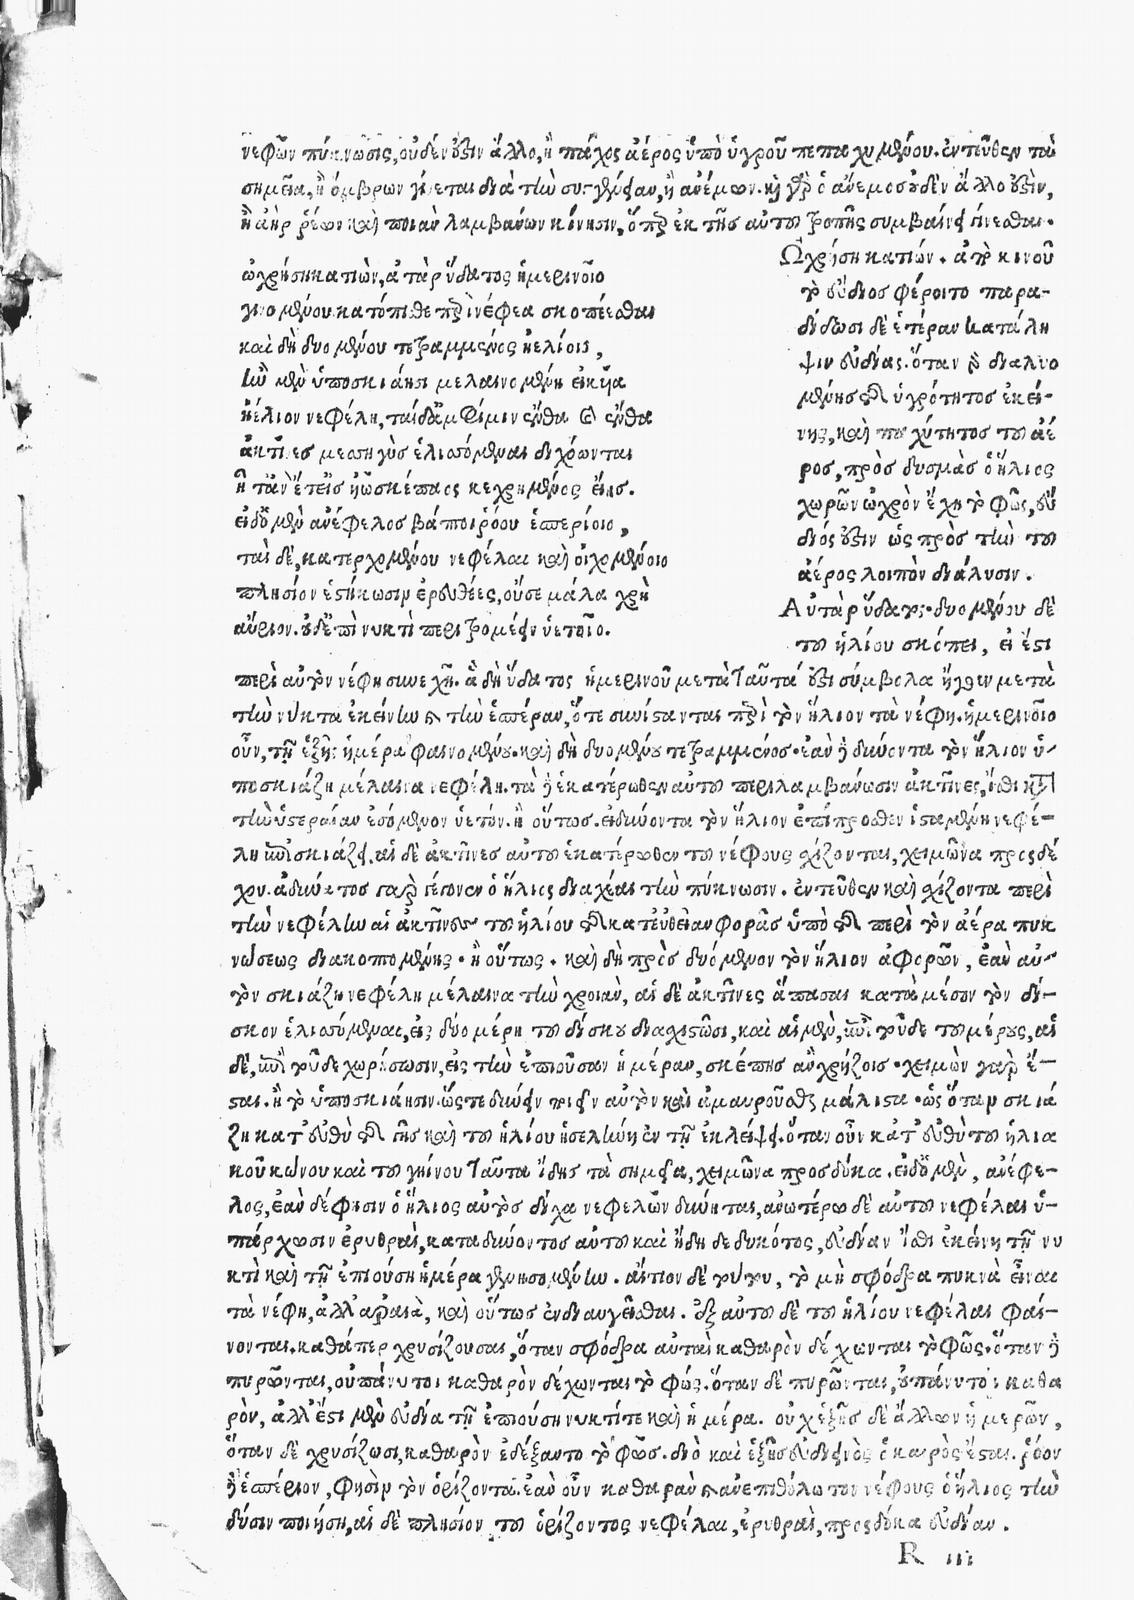 νεφῶν πύκνωσις, οὐδέν ἐστιν ἄλλο, ἢ πάχος ἀέρος ὑπὸ ὑγροῦ πεπαχυμένου. ἐντεῦθεν τὰ
σημεῖα, ἢ ὄμβρων γίνεται διὰ τὴν συγγένειαν, ἢ ἀνέμων. καὶ γὰρ ὁ ἄνεμος οὐδὲν ἄλλο ἐστὶν,
ἢ ἀὴρ ῥέων καὶ ποιὰν λαμβάνων κίνησιν, ὅπερ ἐκ τῆς αὐτοῦ τροπῆς συμβαίνει γίνεσθαι.
ὠχρήση κατιὼν, ἀτὰρ ὕδατος ἡμερινοῖο
γινομένου κατόπισθε περὶ νέφεα σκοπέεσθαι
καὶ δὴ δυομένου τετραμμένος ἠελίοιο,
ἢν μὲν ὑποσκιάησι μελαινομένη εἰκῆα
ἠέλιον νεφέλη, ταὶ δ' ἀμφί μιν ἔνθα καὶ ἔνθα
ἀκτῖνες μεσηγὺς ἑλισσόμεναι διχόωνται
ἢ τ' ἂν ἔτ' εἰς ἠῶ σκέπαος κεχρημένος εἴης.
εἰ δ' ὁ μὲν ἀνέφελος βάπτοι ῥόου ἑσπερίοιο,
ταὶ δὲ, κατερχομένου νεφέλαι καὶ οἰχομένοιο
πλησίον ἑστήκωσιν ἐρευθέες, οὔ σε μάλα χρὴ
αὔριον. οὐδ' ἐπὶ νυκτὶ περιτρομέειν ὑετοῖο.
Ὠχρήση κατιών. ἀπὸ κοινοῦ
τὸ εὔδιος φέροιτο παρα-
δίδωσι δὲ ἑτέραν κατάλη
ψιν εὐδίας. ὅταν γὰρ διαλυο
μένης τῆς ὑγρότητος ἐκεί-
νης, καὶ παχύτητος τοῦ ἀέ
ρος, πρὸς δυσμὰς ὁ ἥλιος
χωρῶν ὠχρὸν ἔχῃ τὸ φῶς, εὔ
διός ἐστιν ὡς πρὸς τὴν τοῦ
ἀέρος λοιπὸν διάλυσιν.
Αὐτὰρ ὕδατος. δυομένου δὲ
τοῦ ἡλίου σκόπει, εἰ ἔστι
περὶ αὐτὸν νέφη συνεχῆ. ἃ δὴ ὕδατος ἡμερινοῦ μετὰ ταῦτά ἐστι σύμβολα ἤγουν μετὰ
τὴν νύκτα ἐκείνην καὶ τὴν ἑσπέραν, ὅτε συνίστανται περὶ τὸν ἥλιον τὰ νέφη. ἡμερινοῖο
οὖν, τῇ ἑξῆς ἡμέρᾳ φαινομένου. καὶ δὴ δυομένου τετραμμένος. ἐὰν ᾖ δύνοντα τὸν ἥλιον ὑ-
ποσκιάζῃ μέλαινα νεφέλη. τὰ δὲ ἑκατέρωθεν αὐτοῦ περιλαμβάνωσιν ἀκτῖνες, ἴσθι κατὰ
τὴν ὑστεραίαν ἐσόμενον ὑετόν. ἢ οὕτως. εἰ δύνοντα τὸν ἥλιον ἐπίπροσθεν ἱσταμένη νεφέ-
λη ἐπισκιάζει. αἱ δὲ ἀκτῖνες αὐτοῦ ἑκατέρωθεν τοῦ νέφους σχίζονται, χειμῶνα προσδέ
χου. ἀδύνατος γὰρ γέγονεν ὁ ἥλιος διαχέαι τὴν πύκνωσιν. ἐντεῦθεν καὶ σχίζονται περὶ
τὴν νεφέλην αἱ ἀκτῖνες τοῦ ἡλίου τῆς κατ' εὐθεῖαν φορᾶς ὑπὸ τῆς περὶ τὸν ἀέρα πυκ
νώσεως διακοπτομένης. ἢ οὕτως. καὶ δὴ πρὸς δυόμενον τὸν ἥλιον ἀφορῶν, ἐὰν αὐ-
τὸν σκιάζῃ νεφέλη μέλαινα τὴν χροιὰν, αἱ δὲ ἀκτῖνες ἅπασαι κατὰ μέσον τὸν δί-
σκον ἑλισσόμεναι, εἰς δύο μέρη τοῦ δίσκου διαχισθῶσι, καὶ αἱ μὲν, ἐπὶ τοῦδε τοῦ μέρους, αἱ
δὲ, ἐπὶ τοῦδε χωρίσωσιν, εἰς τὴν ἐπιοῦσαν ἡμέραν, σκέπης ἂν χρῄζοις. χειμὼν γὰρ ἔ-
σται. ἢ τὸ ὑποσκιάησιν. ὥστε δύνειν ποιεῖν αὐτὸν καὶ ἀμαυροῦσθαι μάλιστα. ὡς ὅταν σκιά
ζῃ κατ' εὐθὺ τῆς γῆς καὶ τοῦ ἡλίου ἡ σελήνη ἐν τῇ ἐκλείψει. ὅταν οὖν κατ' εὐθὺ τοῦ ἡλια
κοῦ κώνου καὶ τοῦ γηίνου ταῦτα ἴδῃς τὰ σημεῖα, χειμῶνα προσδόκα. εἰ δ' ὁ μὲν, ἀνέφε-
λος, ἐὰν δέ φησιν ὁ ἥλιος αὐτὸς δίχα νεφελῶν δύνηται, ἀνωτέρω δὲ αὐτοῦ νεφέλαι ὑ-
πάρχωσιν ἐρυθραὶ, καταδύνοντος αὐτοῦ καὶ ἤδη δεδυκότος, εὐδίαν ἴσθι ἐκείνῃ τῇ νυ
κτὶ καὶ τῇ ἐπιούσῃ ἡμέρᾳ γενησομένην. αἴτιον δὲ τούτου, τὸ μὴ σφόδρα πυκνὰ εἶναι
τὰ νέφη, ἀλλ' ἀραιὰ, καὶ οὕτως ἐνδιαυγεῖσθαι. ἐξ αὐτοῦ δὲ τοῦ ἡλίου νεφέλαι φαί-
νονται. καθάπερ χρυσίζουσαι, ὅταν σφόδρα αὐταὶ καθαρὸν δέχωνται τὸ φῶς. ὅταν ᾖ
πυρῶνται, οὐ πάνυ τοι καθαρὸν δέχωνται τὸ φῶς. ὅταν δὲ πυρῶνται, οὐ πάνυ τοι καθα
ρὸν, ἀλλ' ἔστι μὲν εὐδία τῇ ἐπιούσῃ νυκτί τε καὶ ἡμέρᾳ. οὐχ ἑξῆς δὲ ἄλλων ἡμερῶν,
ὅταν δὲ χρυσίζωσι, καθαρὸν ἐδέξαντο τὸ φῶς. διὸ καὶ ἑξῆς εὐδινὸς ὁ καιρὸς ἔσται. ῥόον
δ' ἑσπέριον, φησὶν τὸν ὁρίζοντα. ἐὰν οὖν καθαρὰν καὶ ἀνεπιθόλωτον νέφους ὁ ἥλιος τὴν
δύσιν ποιήσῃ, αἱ δὲ πλησίον τοῦ ὁρίζοντος νεφέλαι, ἐρυθραὶ, προσδόκα εὐδίαν.
R iii